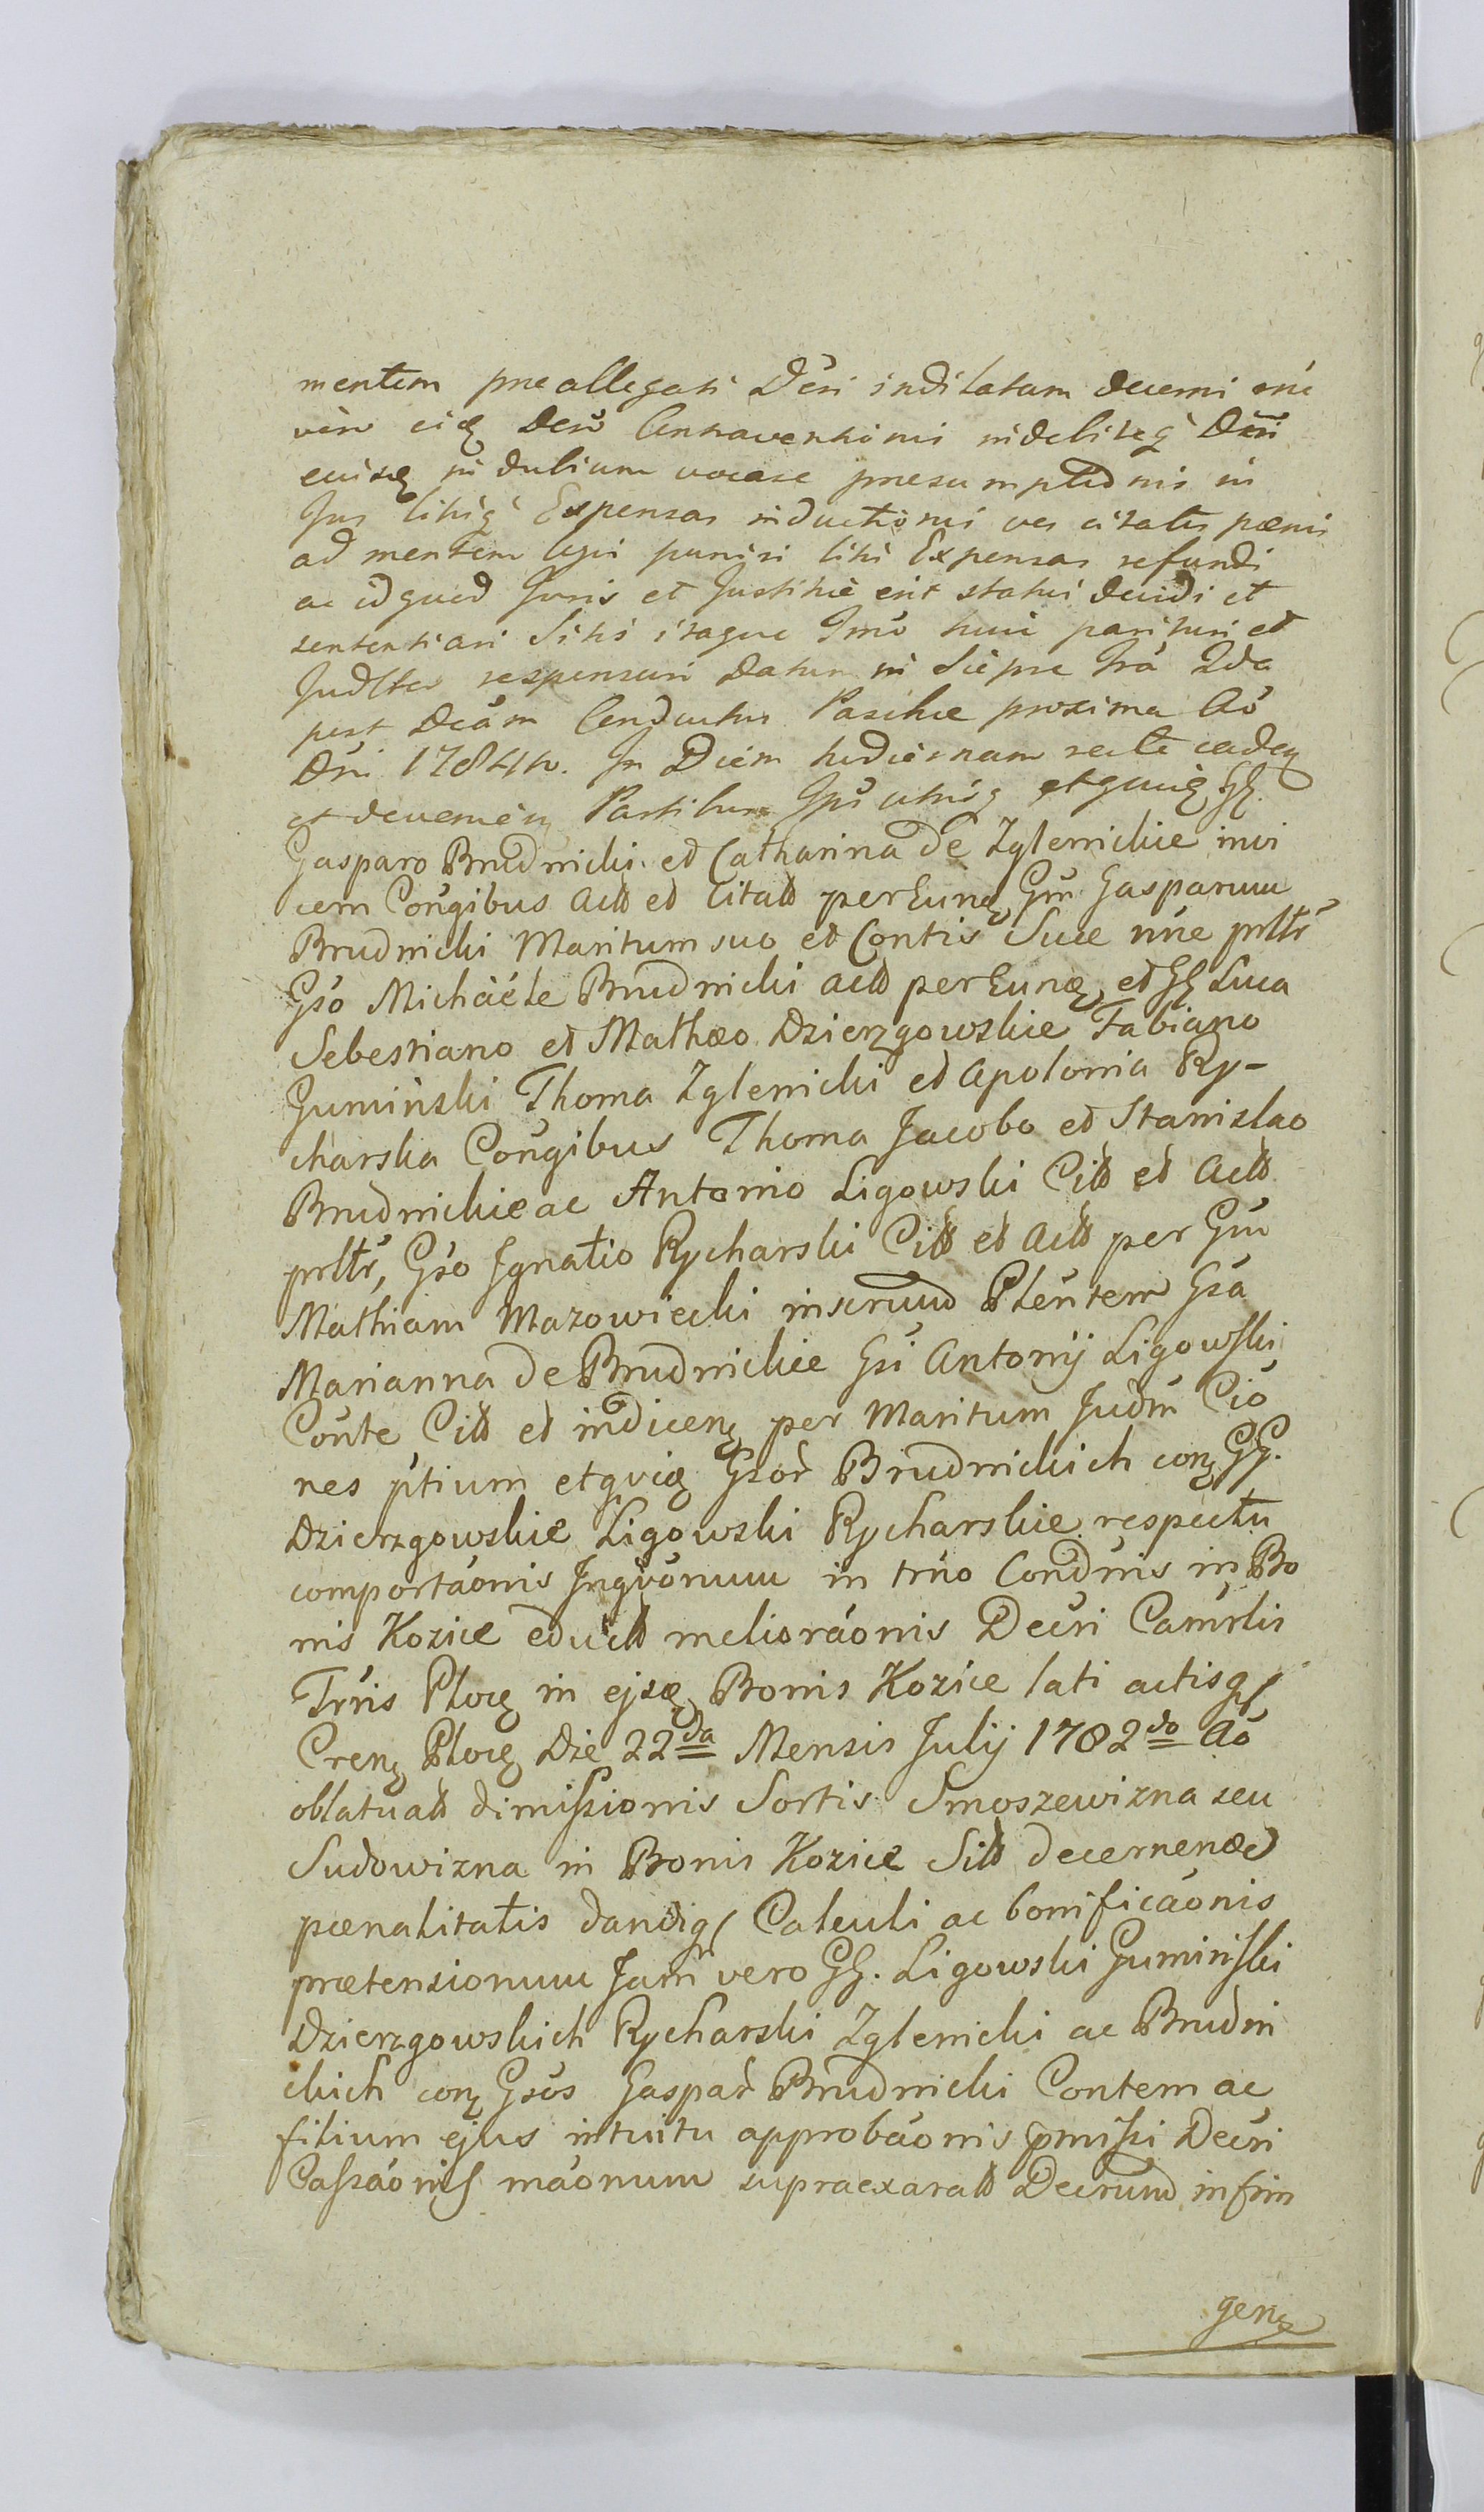 mentem preallegati Decri inditatam decerni
eidq Decr Contraventionis indebiteq Decri
eiusdq in dubium vocare praesumptionis in
Jus litisq Expensas inductionis citatis paenis
ad mentem legis puniri litis Expensas refundi
ac id quod Juris et Justitiae erit statui decidi et
sententiari Sitis itaque Tmo huic parituri et
Judlter responsuri Datum in Sierpce fra 2da
post Dcam Conductus Paschae proxima Ao
Dni 1784to. In Diem hodiernam recte cadeq
et deveniēn Partibus Ipsi utrisq etquidq GG.
Gasparo Brudnicki et Catharina de Zglenickie invi
cem Cougibus Actt et Citatt per Eundq Gm Gasparum
Brudnicki Maritum suo et Contis Suae nne prltr
Gso Michaéle Brudnicki actt per Eundq et GG Luca
Sebestiano et Mathæo Dzierzgowskie Fabiano
Gumiński Thoma Zglenicki et Apolonia Ry-
charska Cougibus Thoma Jacobo et Stanislao
Brudnickie ac Antonio Ligowski Citt et Actt
prltr, Gso Ignatio Rycharski Citt et Actt per Gm
Mathiam Mazowiecki inscrum Plentem Gsa
Marianna de Brudnickie Gsi Antonij Ligowski
Conte Citt et indicenq per Maritum Judm Cio
nes ptium etqvidq Gsor Brudnickich conq GG.
Dzierzgowskie Ligowski Rycharskie respectu
comportaonis Inqvonum in trno Condnis in Bo
nis Kozice eductt melioraonis Decri Camrlis
Trris Plocq in ejsdq Bonis Kozice lati actisq
Crenq Plocq Die 22da Mensis Julij 1782do Ao
oblatuatt dimissionis Sortis Smoszewizna seu
Sudowizna in Bonis Kozice Sitt decernenœ
pœnalitatis dandiq Calculi ac bonificaonis
prætensionum Jam vero GG. Ligowski Gumiński
Dzierzgowskich Rycharski Zglenicki ac Brudni
ckich conq Gsos Gaspar Brudnicki Contem ac
filium ejus intuitu approbaonis pmissi Decri
Cassaonis maonum supraexaratt Decrum infrin
genq